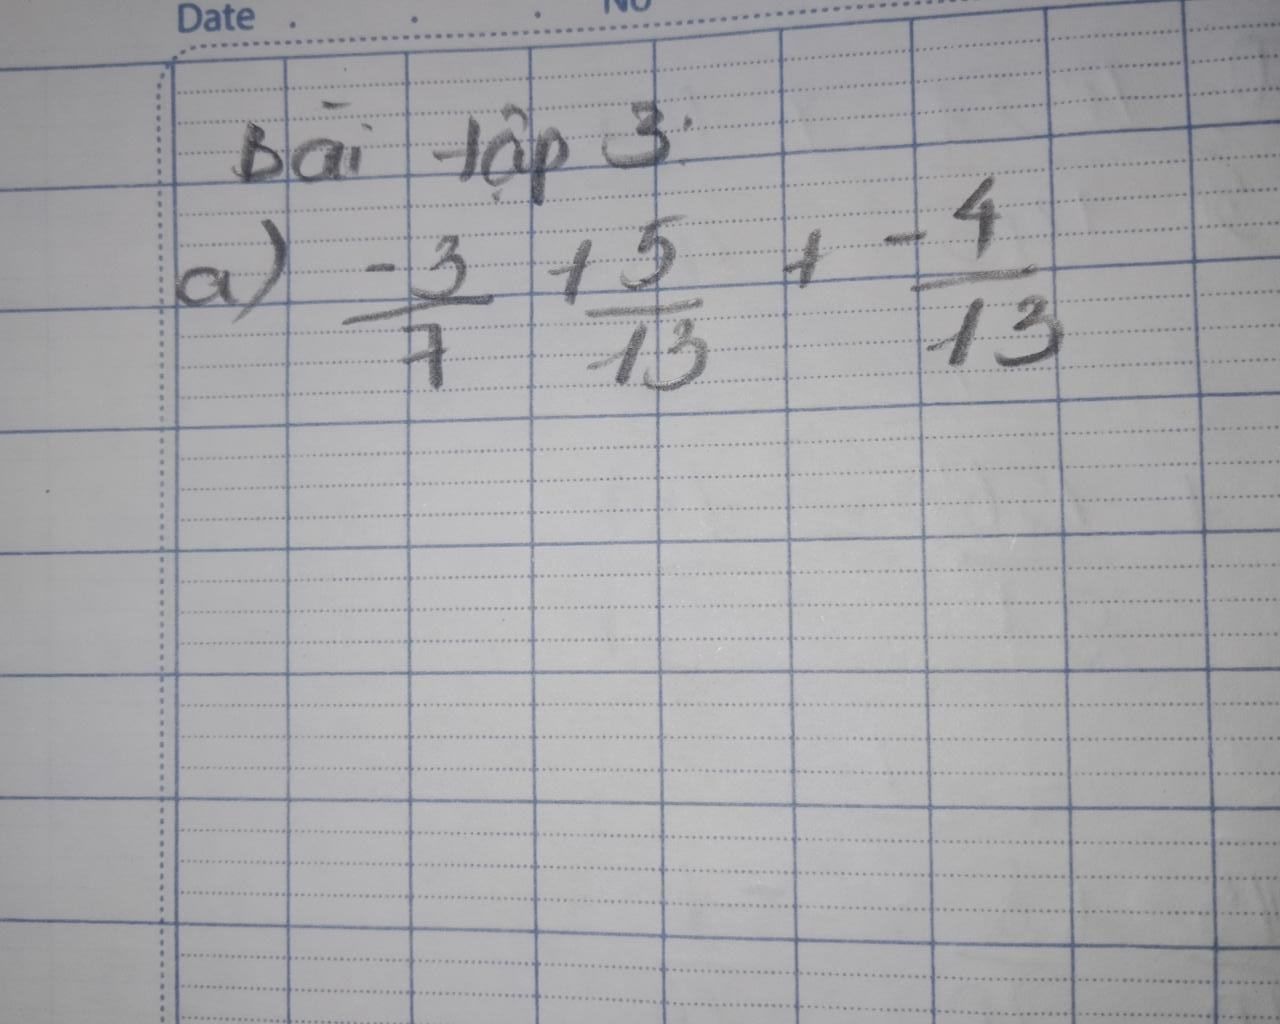 Date . . . No
Bài tập 3:
a) -3/7 + 5/13 + -4/13